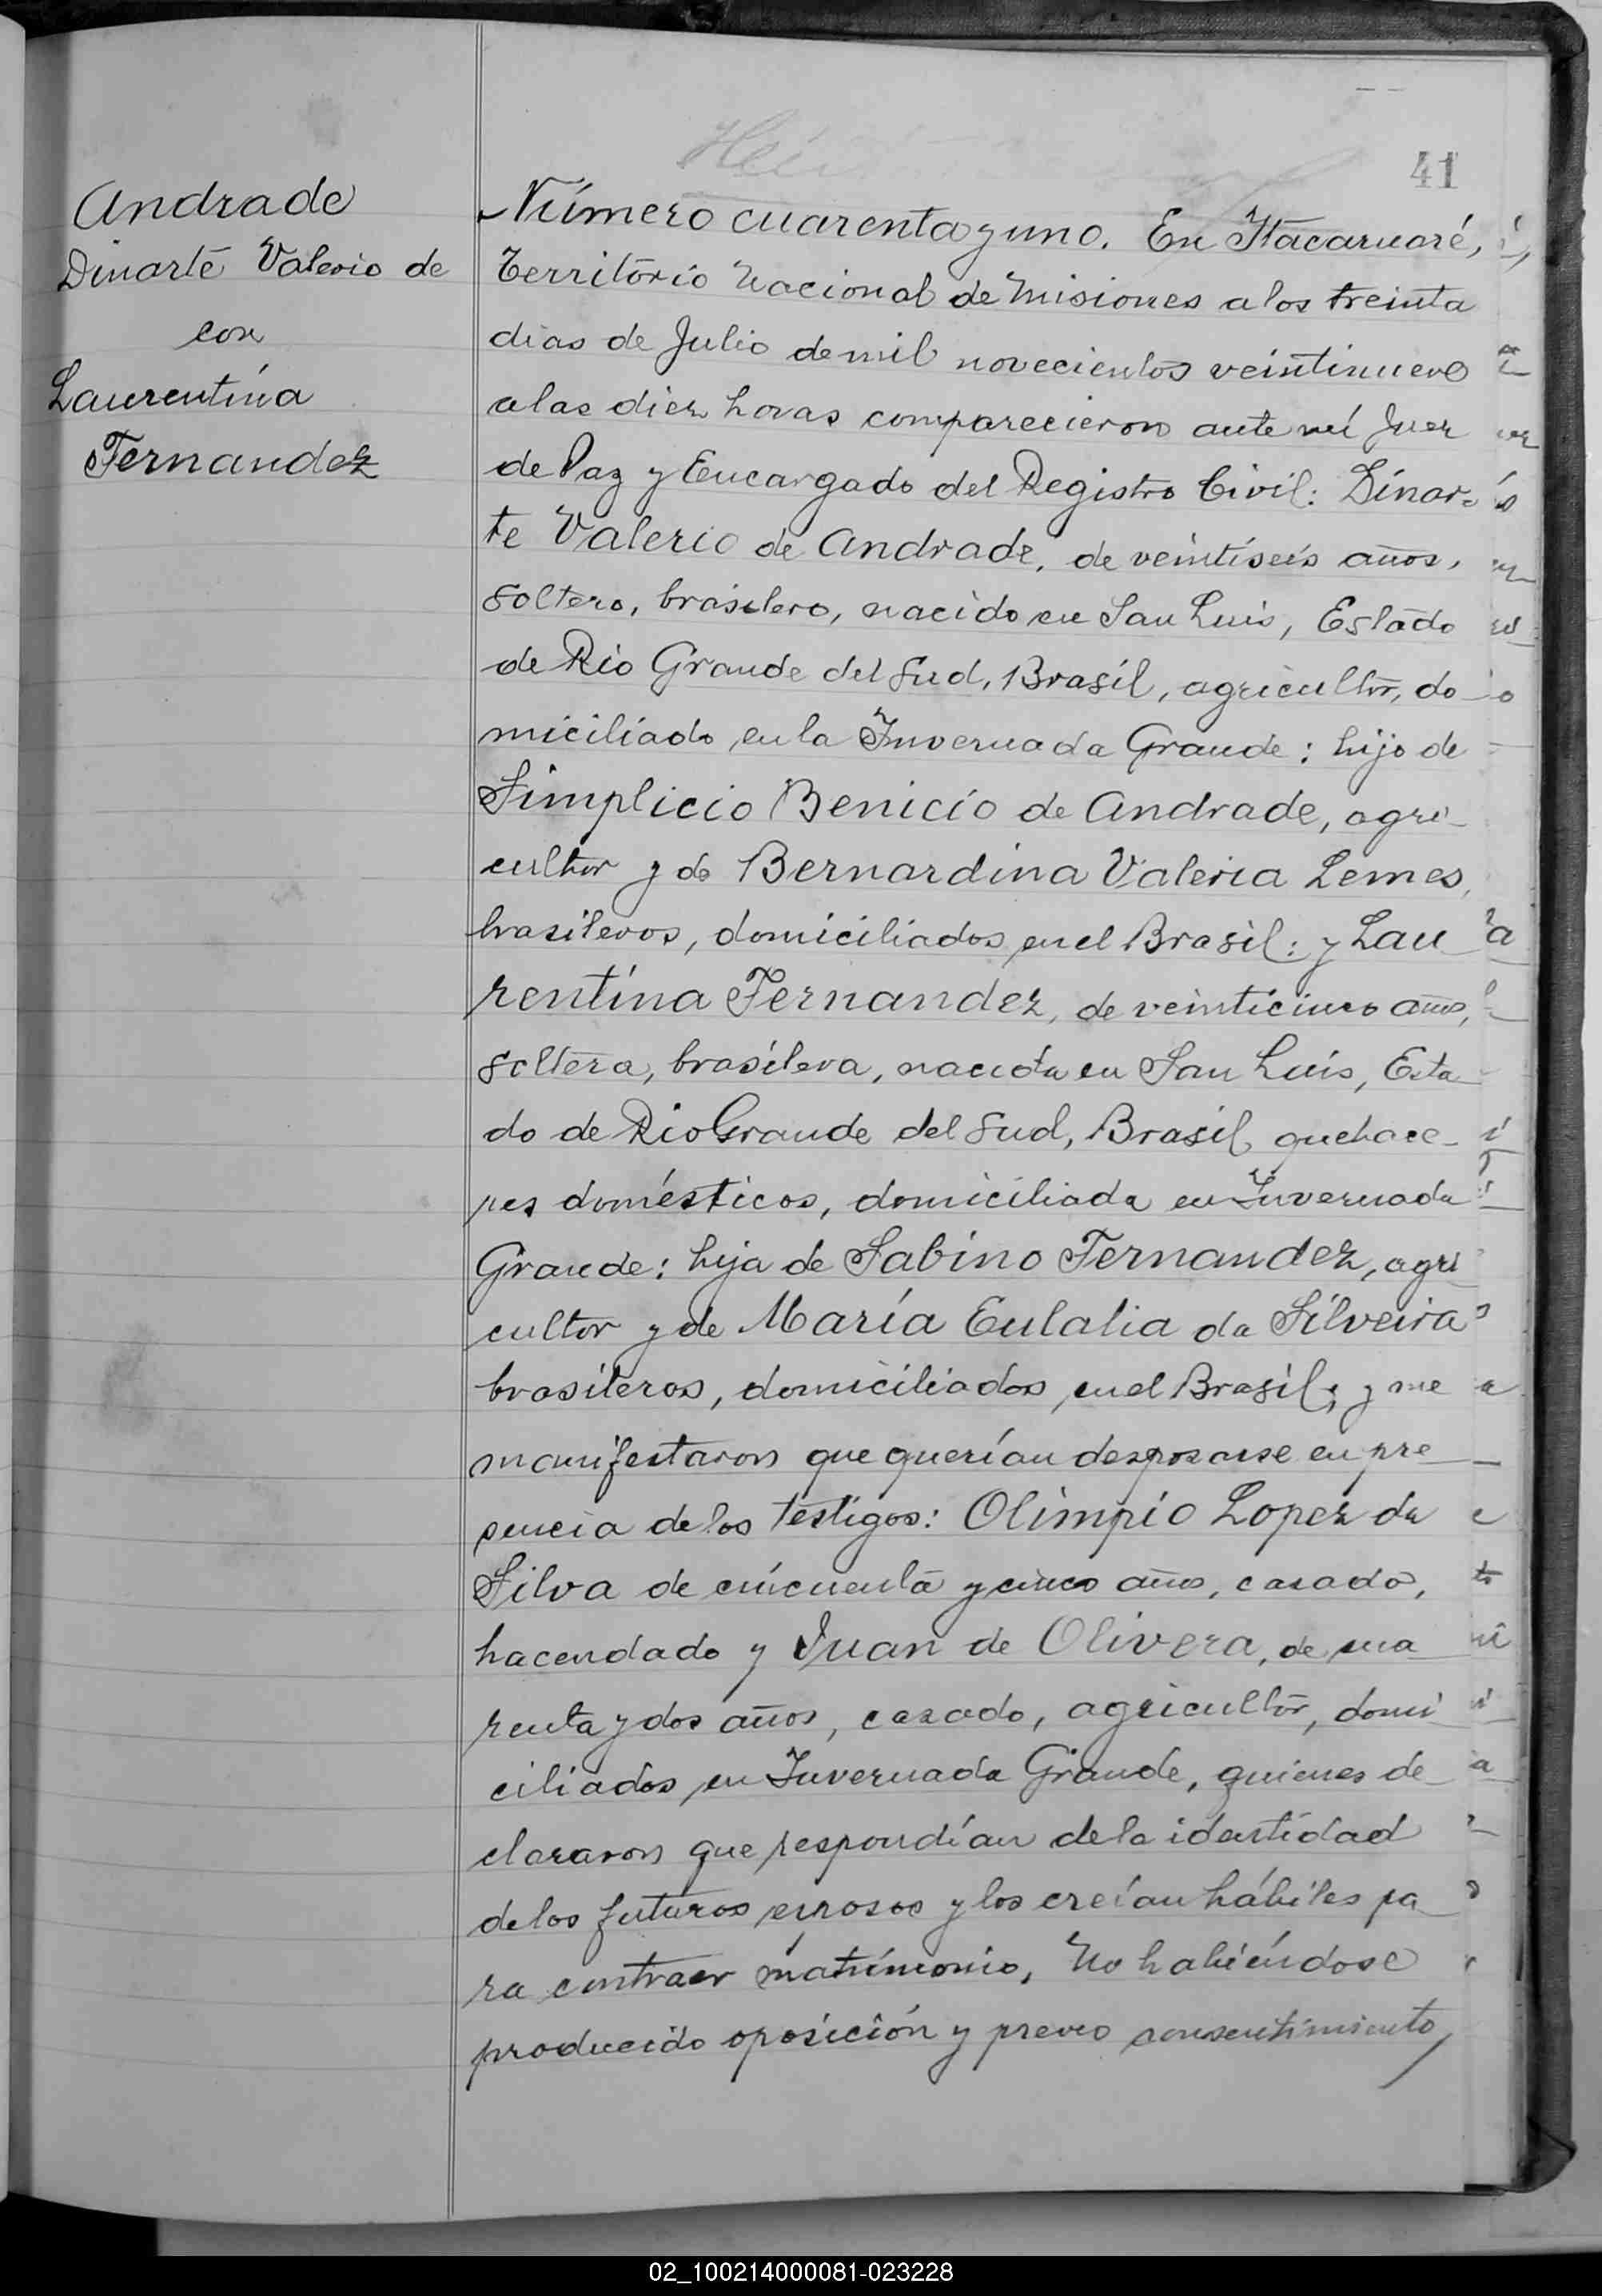 41
Andrade
Dinarte Valerio de
con
Laurentina
Fernandez
Número cuarenta y uno. En Itacaruaré,
Territorio Nacional de Misiones a los treinta
dias de Julio de mil novecientos veintinueve
a las diez horas comparecieron ante mí Juez
de Paz y Encargado del Registro Civil: Dinar-
te Valerio de Andrade, de veintiseis años,
soltero, brasilero, nacido en San Luis, Estado
de Rio Grande del Sud, Brasil, agricultor, do
miciliado en la Invernada Grande: hijo de
Simplicio Benicio de Andrade, agri-
cultor y de Bernardina Valeria Lemes,
brasileros, domiciliados en el Brasil: y Lau
rentina Fernandez, de veinticinco años,
soltera, brasilera, nacida en San Luis, Esta
do de Rio Grande del Sud, Brasil, quehace-
res domésticos, domiciliada en Invernada
Grande: hija de Sabino Fernandez, agri
cultor y de María Eulalia da Silveira
brasileros, domiciliados en el Brasil; y me
manifestaron que querían desposarse en pre
sencia de los testigos: Olimpio Lopez da
Silva de cincuenta y cinco años, casado,
hacendado y Juan de Olivera, de cua
renta y dos años, casado, agricultor, domi
ciliados en Invernada Grande, quienes de
clararon que respondían de la identidad
de los futuros esposos y los creían hábiles pa
ra contraer matrimonio. No habiéndose
producido oposición y previo consentimiento
02_100214000081-023228